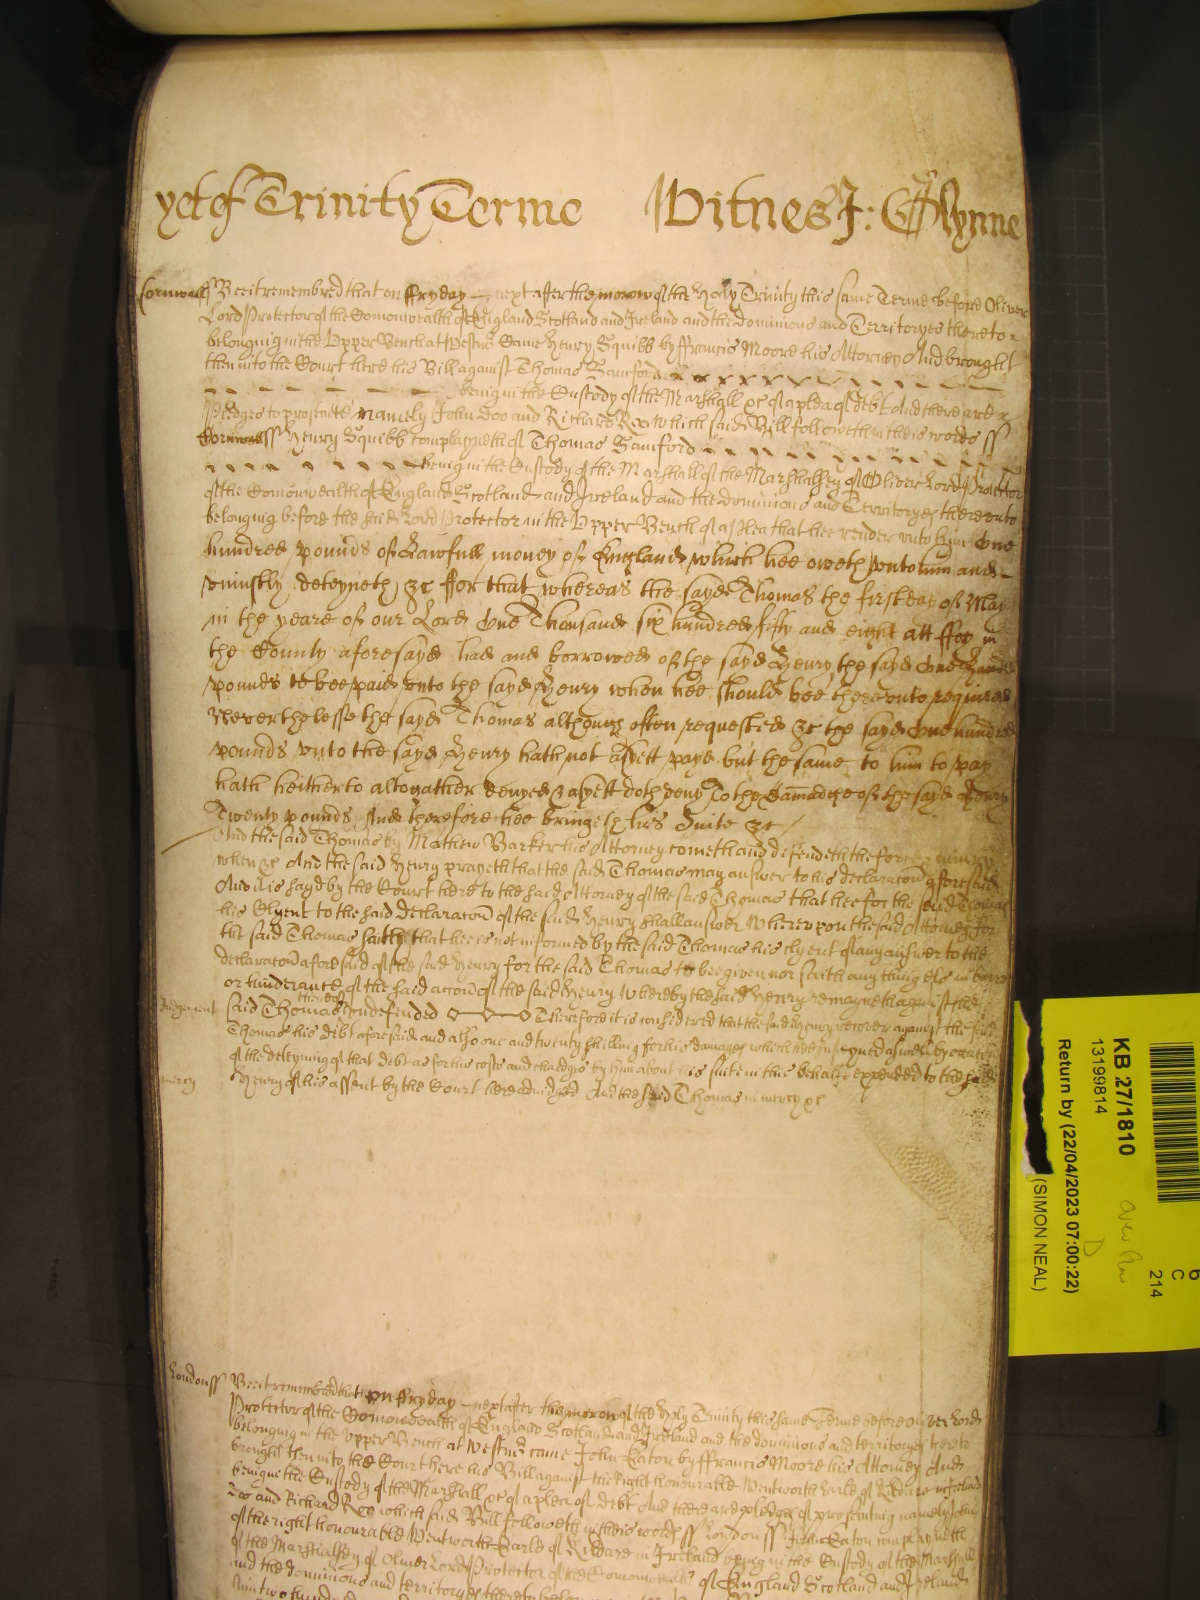 yet of Trinity Terme Witnes J: Glynne
Cornwall ss Bee it remembred that on ffryday next after the morow of the Holy Trinity this same Terme before Oliver
Lord Protector of the Comonwealth of England Scotland and Ireland and the dominions and Territoryes thereto
belonging in the Upper Bench at Westmr Came Henry Squibb by ffrancis Moore his Attorney And brought
then into the Court here his Bill against Thomas Bamford
being in the Custody of the Marshall &c of a plea of debt And there are
Pledges to prosecute namely John Doo and Richard Roo which said Bill followeth in theis words ss
Cornwall ss Henry Squibb complayneth of Thomas Bamford
being in the Custody of the Marshall of the Marshalsey of Oliver Lord Protector
of the Comonwealth of England Scotland and Ireland and the dominions and Territoryes thereunto
belonging before the said Lord Protector in the Upper Bench of a plea that hee render unto him One
hundred pounds of Lawfull money of England which hee oweth unto him and
uniustly deteyneth &c ffor that whereas the sayd Thomas the first day of May
in the yeare of our Lord One Thousand six hundred fifty and eight att ffoy in
the County aforesayd had and borrowed of the sayd Henry the sayd One hundred
pounds to bee paid unto the sayd Henry when hee should bee thereunto required
Neverthelesse the sayd Thomas although often requested &c the sayd One hundred
pounds unto the sayd Henry hath not as yett payd but the same to him to pay
hath heitherto altogather denyed & as yett doth deny To the damadge of the sayd Henry
Twenty pounds And therefore hee bringeth his Suite &c
And the said Thomas by Mathew Barker his Attorney cometh and defendeth the force & iniury
when &c And the said Henry prayeth that the said Thomas may answer to his declaracon aforesaid
And it is sayd by the Court here to the said Attorney of the said Thomas that hee for the said Thomas
his Clyent to the said declaracon of the said Henry shall answer Whereupon the said Attorney for
the said Thomas saith that hee is not informed by the said Thomas his clyent of any answer to the
declaracon aforesaid of the said Henry for the said Thomas to bee given nor saith any thing els in barr
or hinderance of the said accon of the said Henry Whereby the said Henry remayneth against the
Judgement said Thomas thereof undefended Therefore it is considered that the said Henry recover against the said
Thomas his debt aforesaid and also one and twenty shillings for his damages which hee susteyned aswell by occasion
of the deteyning of that debt as for his costs and chardges by him about his suite in this behalfe expended to the said
mercy Henry of his assent by the Court here adiudged And the said Thomas in mercy &c
London ss Bee it remembred that on ffryday next after the morow of the Holy Trinity this same Terme before Oliver Lord
Protector of the Comonwealth of England Scotland and Ireland and the dominions and territoryes thereto
belonging in the Upper Bench at Westmr came John Eaton by ffrancis Moore his Attorney And
brought then into the Court here his Bill against the Right honourable Wentworth Earle of Kildare in Ireland
being in the Custody of the Marshall &c of a plea of debt And there are pledges of prosecuting namely John
Doo and Richard Roo which said Bill followeth in theis words ss London ss John Eaton complayneth
of the right honourable Wentworth Earle of Kildare in Ireland being in the Custody of the Marshall
of the Marshalsey of Oliver Lord Protector of the Comonwealth of England Scotland and Ireland
and the dominions and territoryes thereto
KB 27/1810
13199814
Return by (22/04/2023 07:00:22)
(SIMON NEAL)
6
C
214